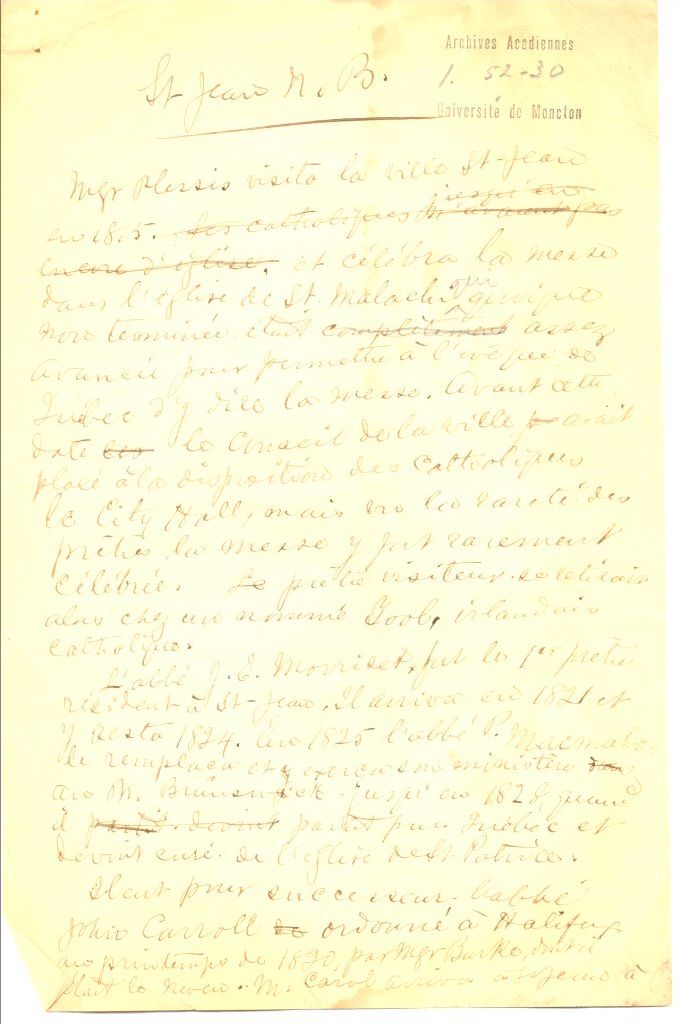 Archives Acadiennes
1. 52-30
Université de Moncton
St Jean N. B.
Mgr Plessis visita la ville St-Jean
jusqu'en
en 1815. Les catholiques n'avaient pas
encore d'église. et célébra la messe
dans l'eglise de St. Malachi qui quoique
non terminée était complètement assez
avancée pour permettre à l'évêque de
Québec d'y dire la messe. Avant cette
date le Conseil de la ville avait
placé à la disposition des Catholiques
le City Hall, mais vu la rareté des
prêtres la messe y fut rarement
célébrée. Le prêtre visiteur se retirait
alors chez un nommé Toole, irlandais
catholique.
L'abbé J. E. Morriset, fut le 1er prêtre
résident à St-Jean. Il arriva en 1821 et
y resta 1824. En 1825 l'abbé P. Macmahon
le remplaça et y exerça son ministère dans
au N. Brunswick jusqu'en 1828, quand
il partit devint partit pour Québec et
devint curé de l'eglise de St Patrice.
Il eut pour successeur l'abbé
John Carroll ordonné à Halifax
au printemps de 1820, par Mgr Burke, dont il
était le neveu. M. Carol arriva à St Jean à